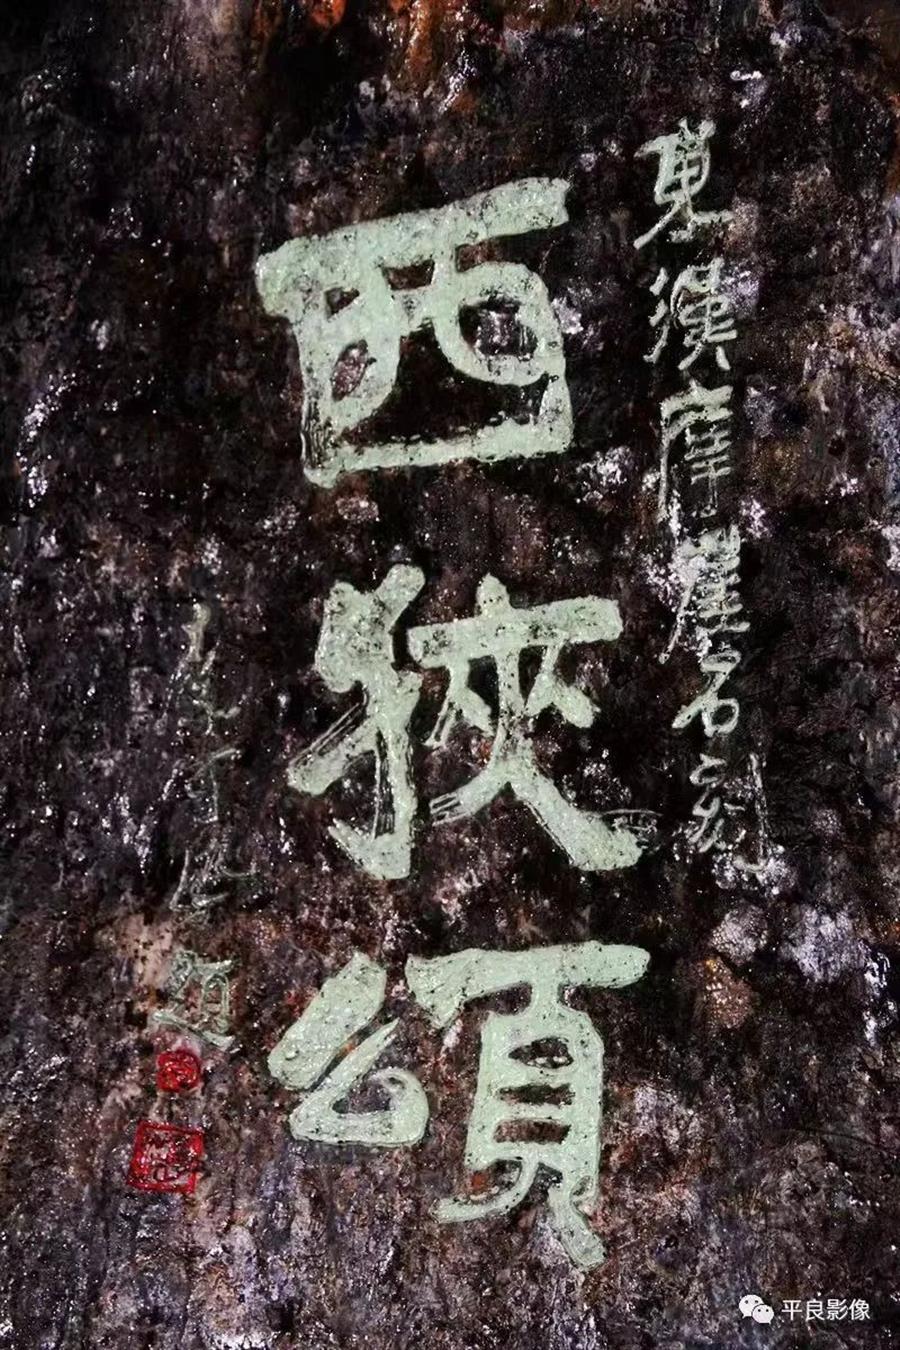 東漢摩崖石刻
西狹頌
題
平良影像